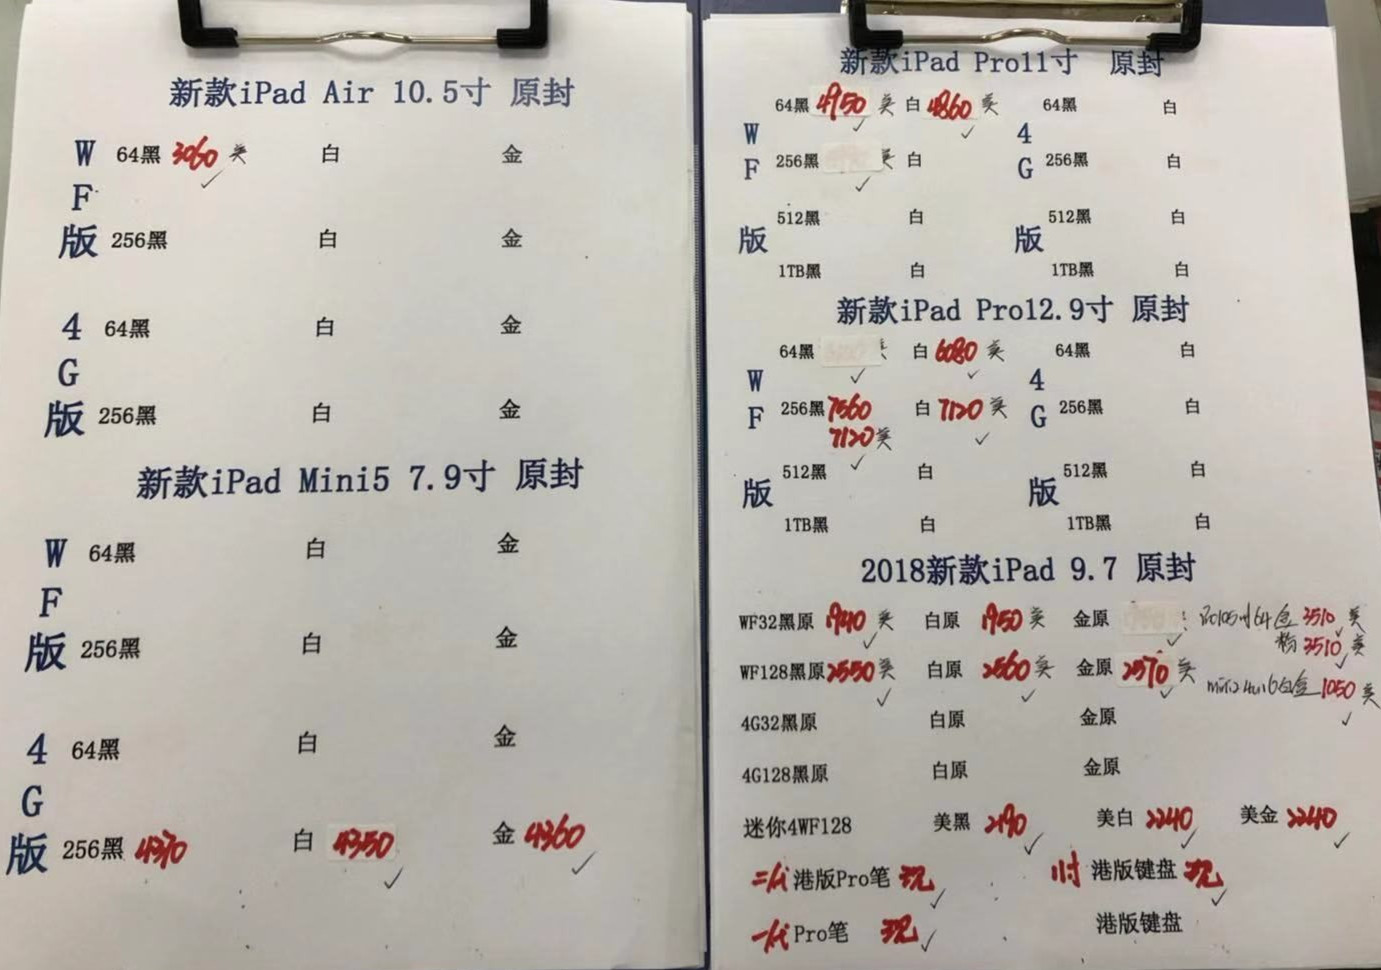 新款iPad Air 10.5寸 原封
WF版
64黑 3060 美 白 金
256黑 白 金
4G版
64黑 白 金
256黑 白 金
新款iPad Mini5 7.9寸 原封
WF版
64黑 白 金
256黑 白 金
4G版
64黑 白 金
256黑 4370 白 4350 金 4360
新款iPad Pro11寸 原封
WF版 4G版
64黑 4950 美 白 4860 美 64黑 白
256黑 美 白 256黑 白
512黑 白 512黑 白
1TB黑 白 1TB黑 白
新款iPad Pro12.9寸 原封
WF版 4G版
64黑 白 6080 美 64黑 白
256黑 7560 白 7120 美 256黑 白
7120 美
512黑 白 512黑 白
1TB黑 白 1TB黑 白
2018新款iPad 9.7 原封
WF32黑原 1940 美 白原 1950 美 金原 3510 美
粉 3510 美
WF128黑原 2550 美 白原 2560 美 金原 2570 美
1050 美
4G32黑原 白原 金原
4G128黑原 白原 金原
迷你4WF128 美黑 2190 美白 2240 美金 2240
二代 港版Pro笔 现 11寸 港版键盘 现
一代 Pro笔 现 港版键盘